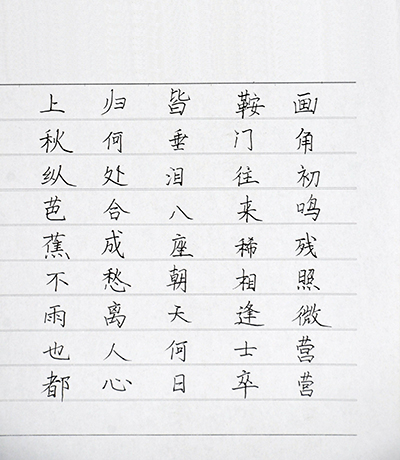 画角初鸣残照微营营
鞍门往来稀相逢士卒
皆垂泪八座朝天何日
归何处合成愁离人心
上秋纵芭蕉不雨也都